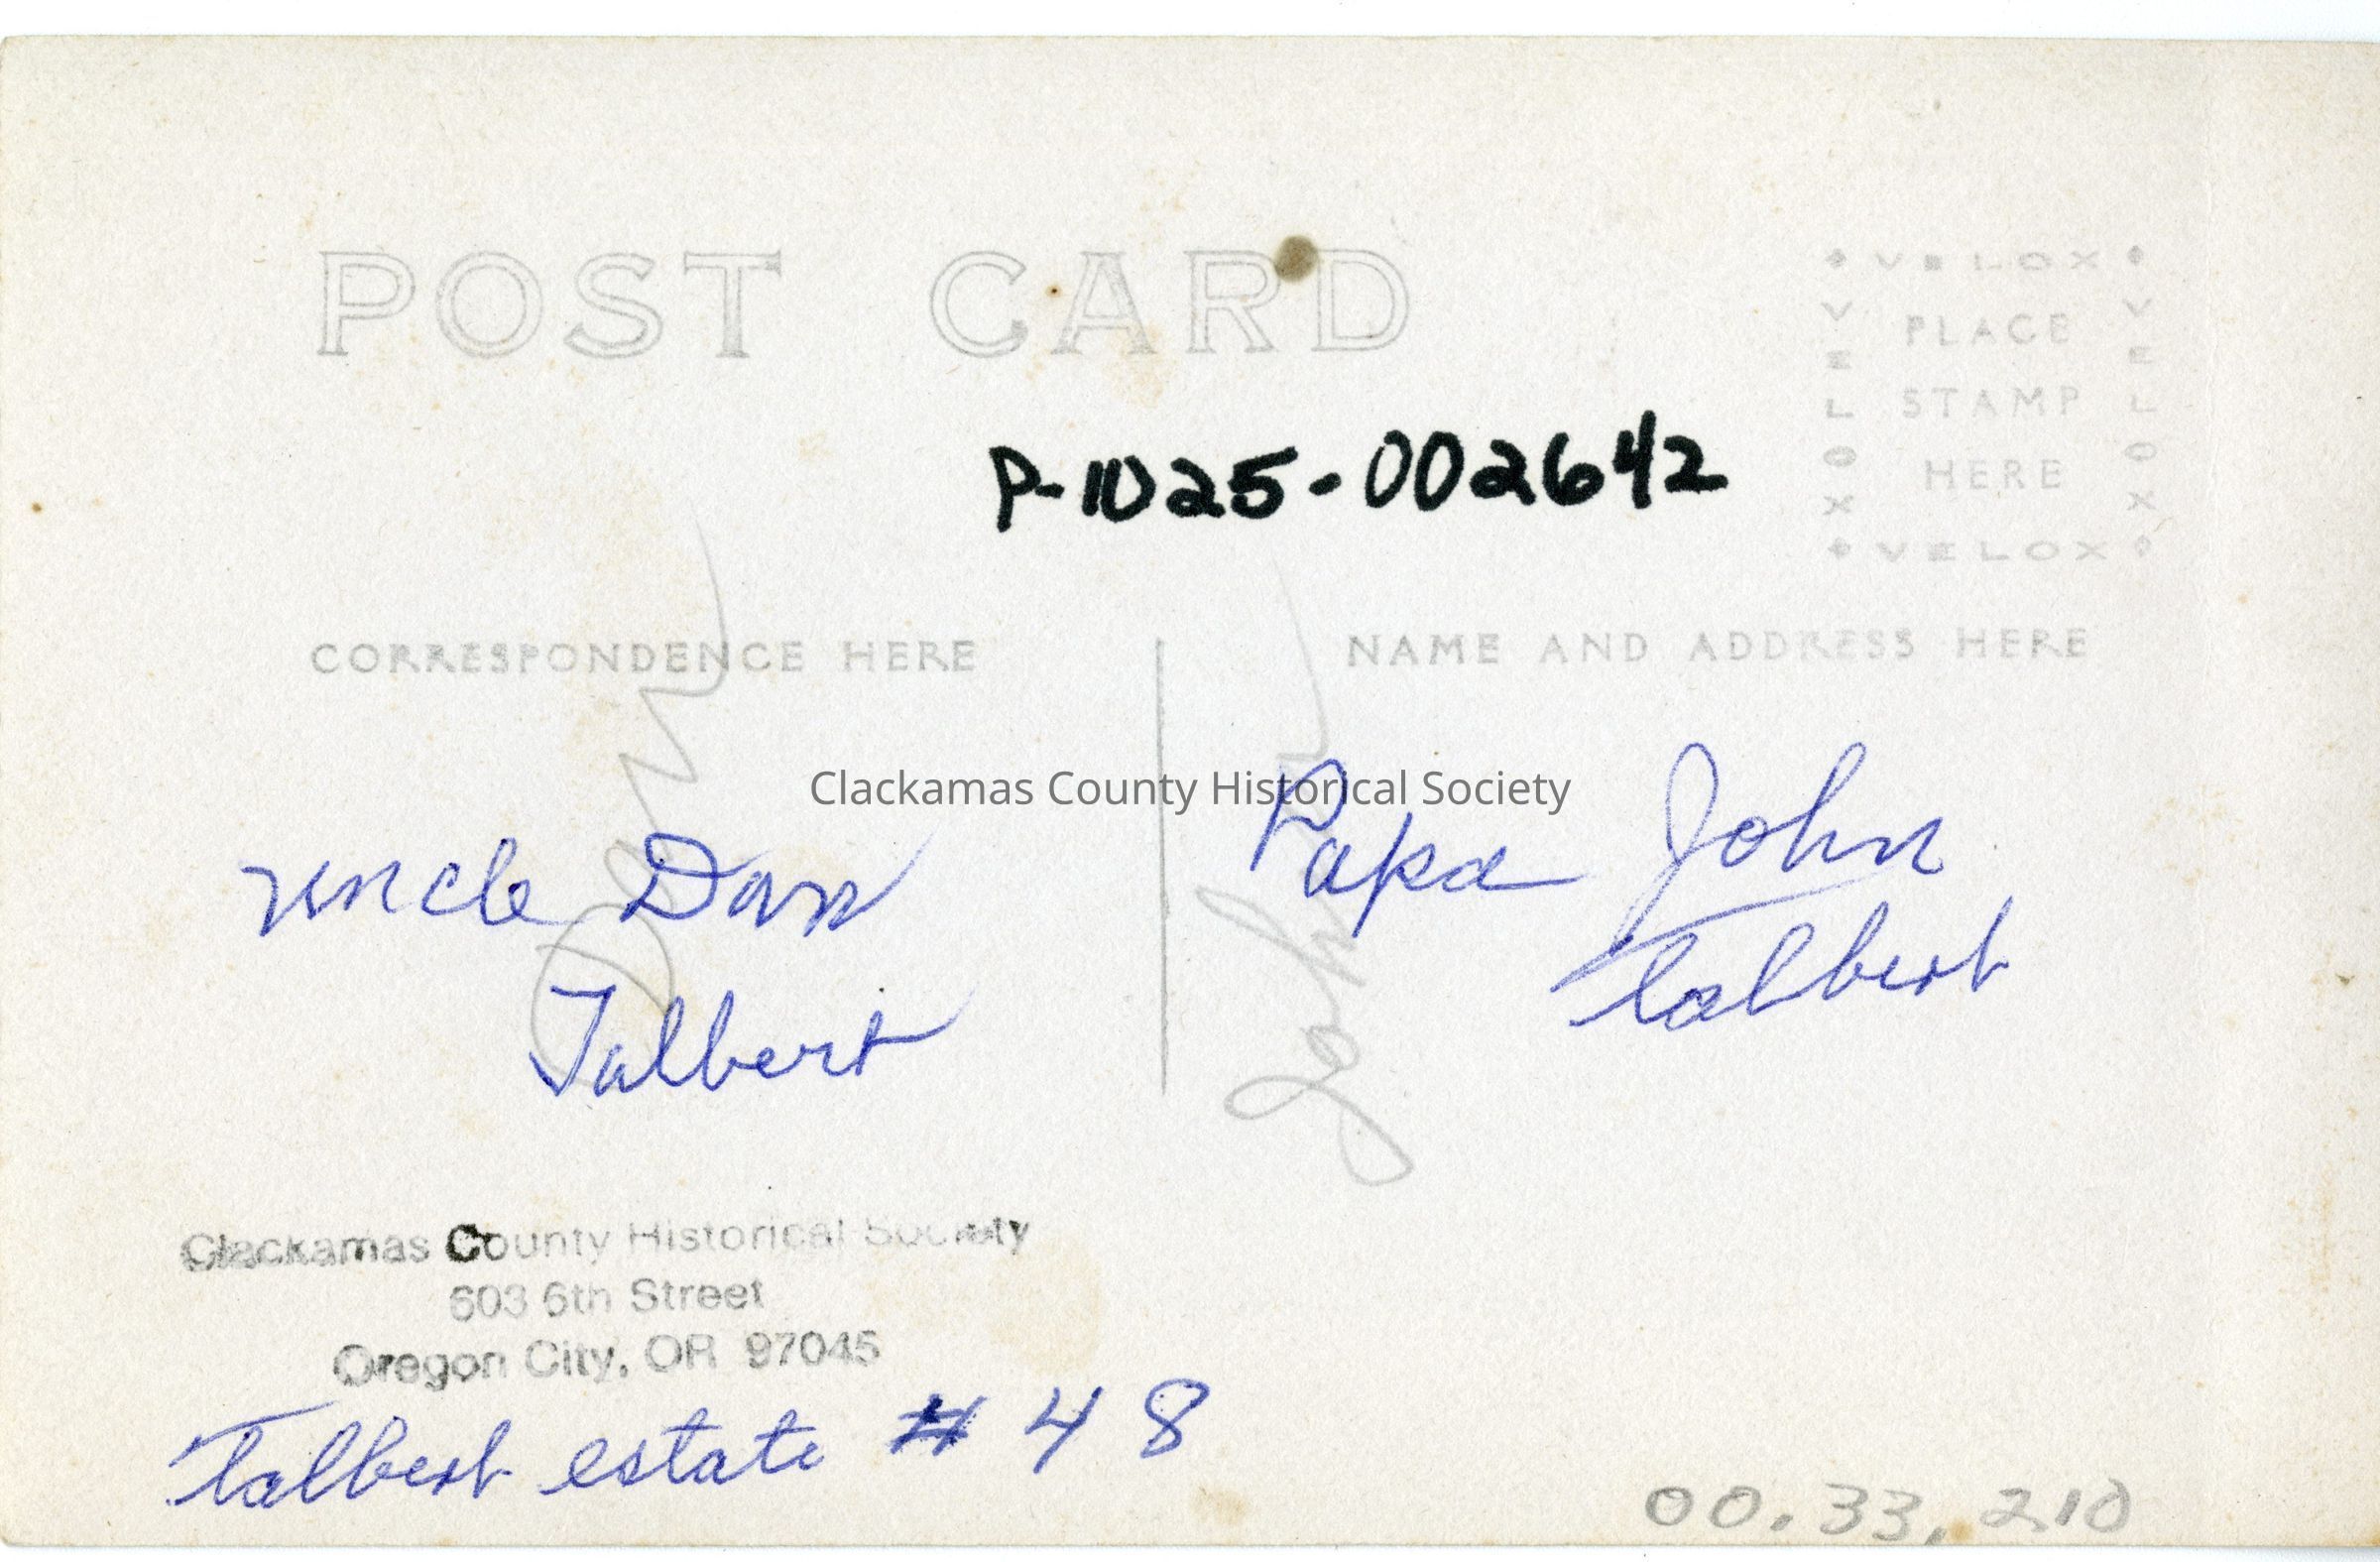 POST CARD
VELOX
VELOX
PLACE
STAMP
HERE
VELOX
VELOX
P-1025-002642
CORRESPONDENCE HERE
NAME AND ADDRESS HERE
Dan
John
Clackamas County Historical Society
uncle Dan
Talbert
Papa John
Talbert
Clackamas County Historical Society
603 6th Street
Oregon City, OR 97045
Talbert estate # 48
00.33.210